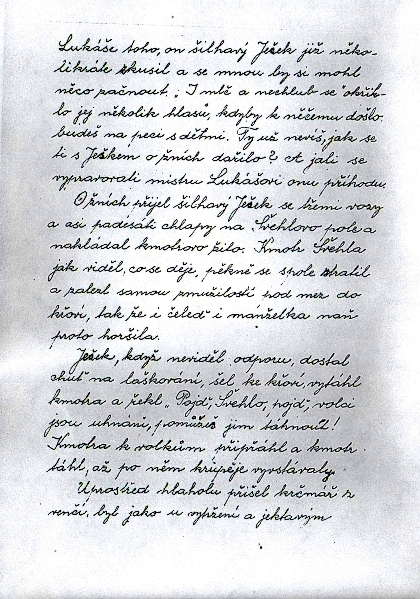 Lukáše toho, on šilhavý Ježek již něko-
likráte zkusil a se mnou by si mohl
něco začnout." „I mlč a nechlub se" okřik-
lo jej několik hlasů, kdyby k něčemu došlo
budeš na peci s dětmi. Ty už nevíš, jak se
ti s Ježkem o žních dařilo? A jali se
vypravovati mistru Lukášovi onu příhodu.
O žních přijel šilhavý Ježek se třemi vozy
a asi padesáti chlapy na Švehlovo pole a
nakládal kmotrovo žito. Kmotr Švehla
jak viděl, co se děje, pěkně se s pole ztratil
a zalezl samou zmužilostí pod mez do
křoví, tak že i čeleď i manželka naň
proto horšila.
Ježek, když neviděl odporu, dostal
chuť na laškování, šel ke křoví, vytáhl
kmotra a řekl „Pojď, Švehlo, pojď, volci
jsou uhnáni, pomůžeš jim táhnout!
Kmotra k volkům připřáhl a kmotr
táhl, až po něm krůpěje vyvstávaly.
Uprostřed hlaholu přišel krčmář z
venčí, byl jako u vytržení a jektavým